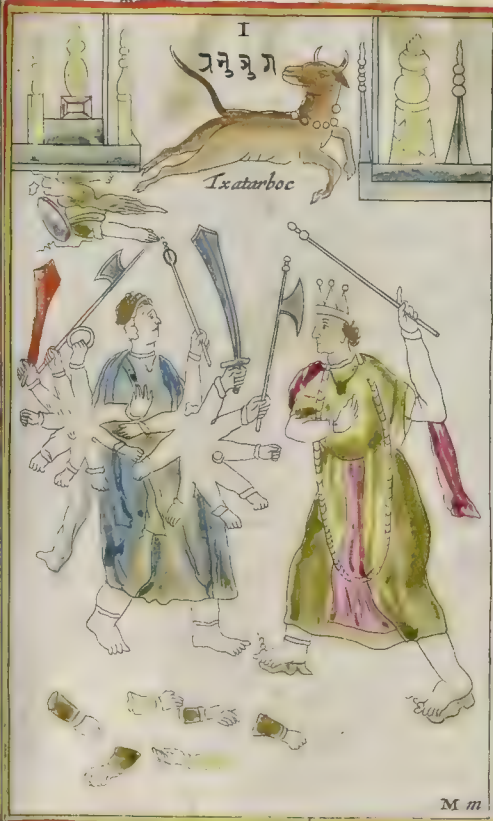 I
Txatarboc
M m